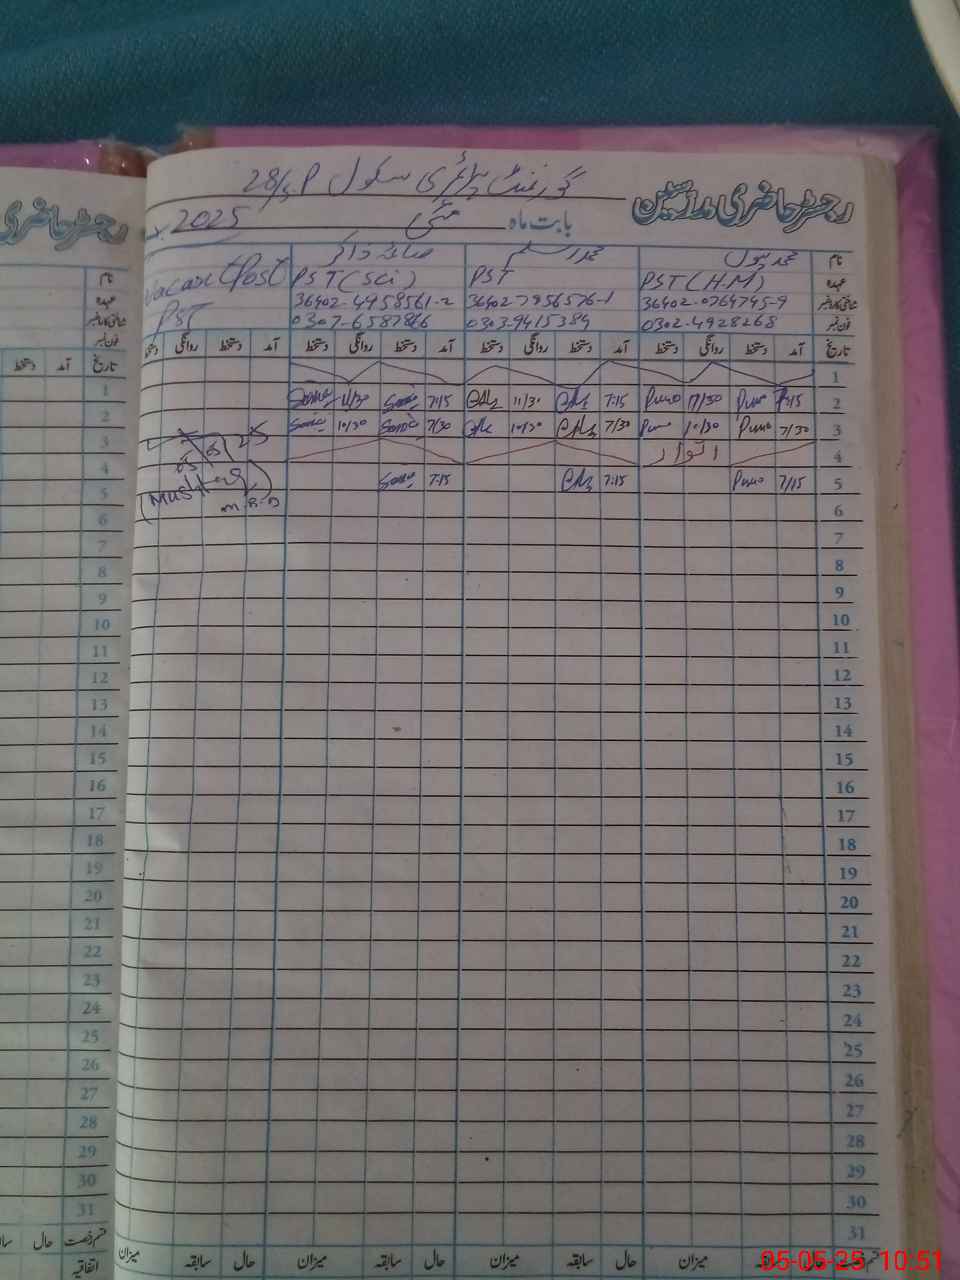 گورنمنٹ پرائمری سکول 28/S.P
رجسٹر حاضری مدرسین
بابت ماہ مئی 2025
نام
عہدہ PST (H.M) PST PST (Sci) Vacant Post
شناختی کارڈ نمبر 36402-0764745-9 36402-7956576-1 36402-4458561-2 PST
فون نمبر 0302-4928268 0303-9415384 0307-6587866
تاریخ آمد دستخط روانگی دستخط آمد دستخط روانگی دستخط آمد دستخط روانگی دستخط آمد دستخط روانگی دستخط
1
2 7/15 11/30 7:15 11/30 7:15 11/30
3 7/30 10/30 7/30 10/30 7/30 10/30
4 اتوار
5 7/15 7:15 7:15
05/05/25
(Mushtaq)
6
7
8
9
10
11
12
13
14
15
16
17
18
19
20
21
22
23
24
25
26
27
28
29
30
31
قسم رخصت حال سابقہ میزان حال سابقہ میزان حال سابقہ میزان
رجسٹر حاضری
نام
عہدہ
شناختی کارڈ نمبر
فون نمبر
تاریخ آمد دستخط
1
2
3
4
5
6
7
8
9
10
11
12
13
14
15
16
17
18
19
20
21
22
23
24
25
26
27
28
29
30
31
قسم رخصت حال
اتفاقیہ
05-05-25 10:51